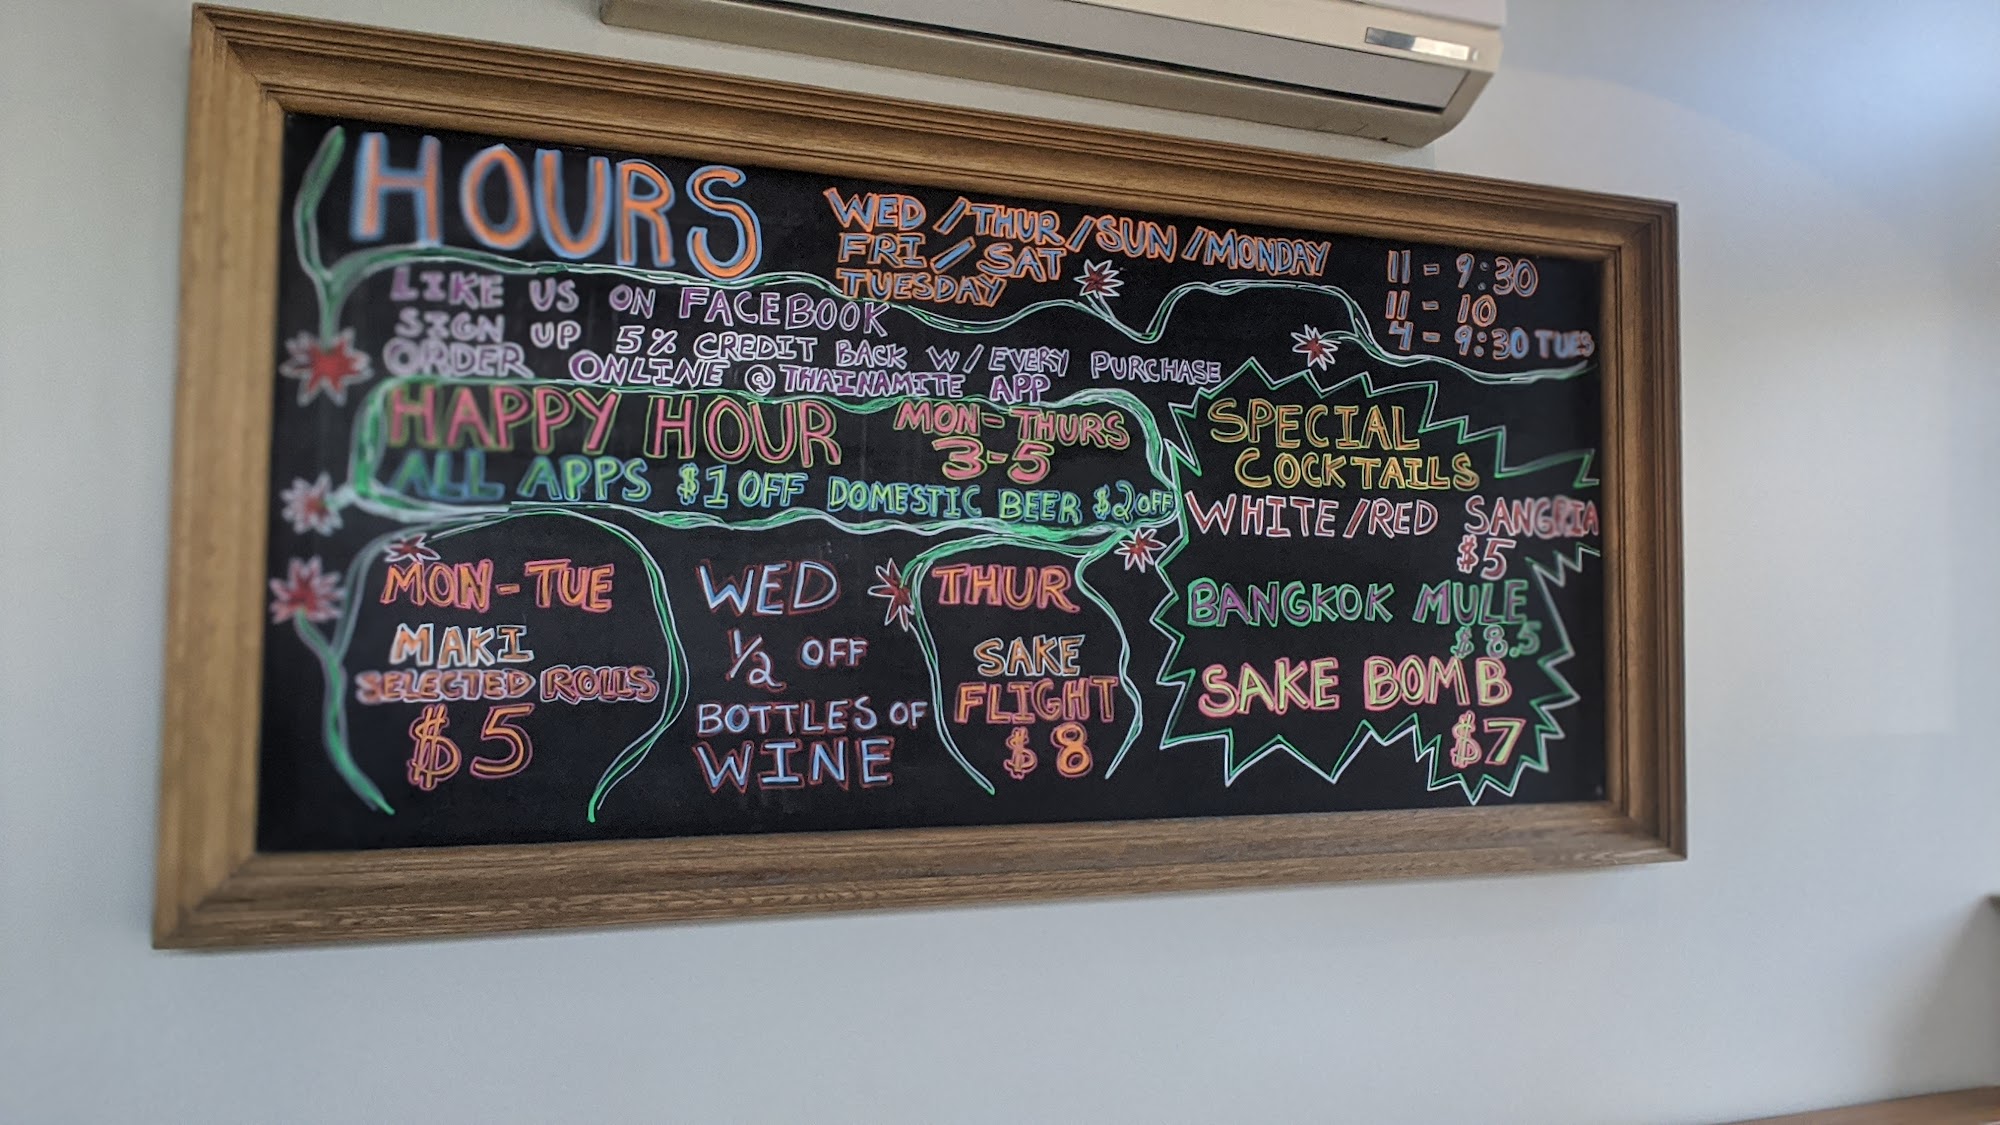 HOURS
WED / THUR / SUN / MONDAY 11 - 9:30
FRI / SAT 11 - 10
TUESDAY 4 - 9:30 TUES
LIKE US ON FACEBOOK
SIGN UP 5% CREDIT BACK W/ EVERY PURCHASE
ORDER ONLINE @ THAINAMITE APP
HAPPY HOUR MON-THURS
3-5
ALL APPS $1 OFF DOMESTIC BEER $2 OFF
MON-TUE
MAKI
SELECTED ROLLS
$5
WED
1/2 OFF
BOTTLES OF
WINE
THUR
SAKE
FLIGHT
$8
SPECIAL
COCKTAILS
WHITE/RED SANGRIA
$5
BANGKOK MULE
$8.5
SAKE BOMB
$7